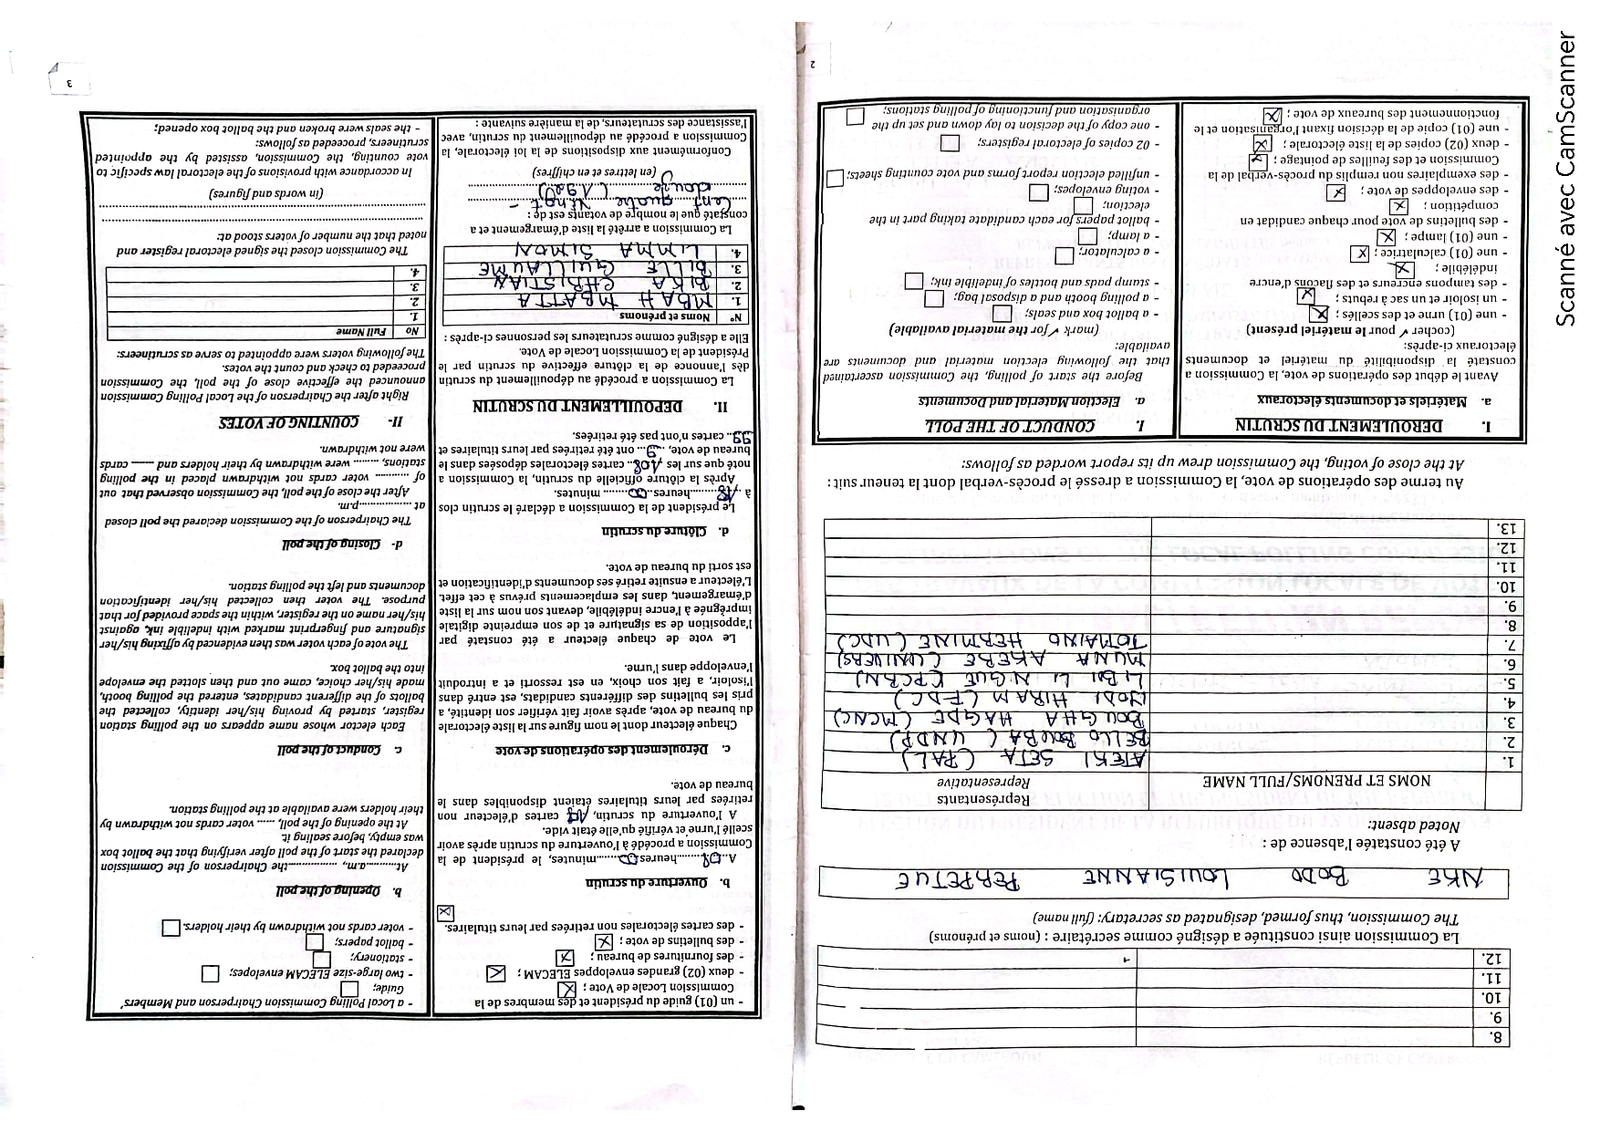 8.
9.
10.
11.
12.
La Commission ainsi constituée a désigné comme secrétaire : (noms et prénoms)
The Commission, thus formed, designated as secretary: (full name)
NKE BODO LOUISIANNE PERPETUE
A été constatée l'absence de :
Noted absent:
NOMS ET PRENOMS/FULL NAME
Représentants
Representative
1. ATEKI SETA (PAL)
2. BELLO BOUBA (UNDP)
3. BOUGHA HAGBE (MCNC)
4. IYODI HIRAM (FDC)
5. LI BII LI NGUE (PCRN)
6. MUNA AKERE (UNIVERS)
7. TOMAINO HERMINE (UDC)
8.
9.
10.
11.
12.
13.
Au terme des opérations de vote, la Commission a dressé le procès-verbal dont la teneur suit :
At the close of voting, the Commission drew up its report worded as follows:
I. DEROULEMENT DU SCRUTIN
a. Matériels et documents électoraux
Avant le début des opérations de vote, la Commission a
constaté la disponibilité du matériel et documents
électoraux ci-après:
(cocher ✓ pour le matériel présent)
- une (01) urne et des scellés ;
- un isoloir et un sac à rebuts ;
- des tampons encreurs et des flacons d'encre
indélébile ;
- une (01) calculatrice ;
- une (01) lampe ;
- des bulletins de vote pour chaque candidat en
compétition ;
- des enveloppes de vote ;
- des exemplaires non remplis du procès-verbal de la
Commission et des feuilles de pointage ;
- deux (02) copies de la liste électorale ;
- une (01) copie de la décision fixant l'organisation et le
fonctionnement des bureaux de vote ;
I. CONDUCT OF THE POLL
a. Election Material and Documents
Before the start of polling, the Commission ascertained
that the following election material and documents are
available:
(mark ✓ for the material available)
- a ballot box and seals;
- a polling booth and a disposal bag;
- stamp pads and bottles of indelible ink;
- a calculator;
- a lamp;
- ballot papers for each candidate taking part in the
election;
- voting envelopes;
- unfilled election report forms and vote counting sheets;
- 02 copies of electoral registers;
- one copy of the decision to lay down and set up the
organisation and functioning of polling stations;
2
- un (01) guide du président et des membres de la
Commission Locale de Vote ;
- deux (02) grandes enveloppes ELECAM ;
- des fournitures de bureau ;
- des bulletins de vote ;
- des cartes électorales non retirées par leurs titulaires.
b. Ouverture du scrutin
A 08 heures 00 minutes, le président de la
Commission a procédé à l'ouverture du scrutin après avoir
scellé l'urne et vérifié qu'elle était vide.
A l'ouverture du scrutin, cartes d'électeur non
retirées par leurs titulaires étaient disponibles dans le
bureau de vote.
c. Déroulement des opérations de vote
Chaque électeur dont le nom figure sur la liste électorale
du bureau de vote, après avoir fait vérifier son identité, a
pris les bulletins des différents candidats, est entré dans
l'isoloir, a fait son choix, en est ressorti et a introduit
l'enveloppe dans l'urne.
Le vote de chaque électeur a été constaté par
l'apposition de sa signature et de son empreinte digitale
imprégnée à l'encre indélébile, devant son nom sur la liste
d'émargement, dans les emplacements prévus à cet effet.
L'électeur a ensuite retiré ses documents d'identification et
est sorti du bureau de vote.
d. Clôture du scrutin
Le président de la Commission a déclaré le scrutin clos
à 18 heures 00 minutes.
Après la clôture officielle du scrutin, la Commission a
noté que sur les 108 cartes électorales déposées dans le
bureau de vote, 9 ont été retirées par leurs titulaires et
99 cartes n'ont pas été retirées.
II. DEPOUILLEMENT DU SCRUTIN
La Commission a procédé au dépouillement du scrutin
dès l'annonce de la clôture effective du scrutin par le
Président de la Commission Locale de Vote.
Elle a désigné comme scrutateurs les personnes ci-après :
N° Noms et prénoms
1. MBAH MBATTA
2. BIKA CHRISTIAN
3. BILLE GUILLAUME
4. LIMMA SIMON
La Commission a arrêté la liste d'émargement et a
constaté que le nombre de votants est de :
Cent quatre vingt -
douze (192)
(en lettres et en chiffres)
Conformément aux dispositions de la loi électorale, la
Commission a procédé au dépouillement du scrutin, avec
l'assistance des scrutateurs, de la manière suivante :
- a Local Polling Commission Chairperson and Members'
Guide;
- two large-size ELECAM envelopes;
- stationery;
- ballot papers;
- voter cards not withdrawn by their holders.
b. Opening of the poll
At..........a.m, ..............the Chairperson of the Commission
declared the start of the poll after verifying that the ballot box
was empty, before sealing it.
At the opening of the poll, ...... voter cards not withdrawn by
their holders were available at the polling station.
c. Conduct of the poll
Each elector whose name appears on the polling station
register, started by proving his/her identity, collected the
ballots of the different candidates, entered the polling booth,
made his/her choice, came out and then slotted the envelope
into the ballot box.
The vote of each voter was then evidenced by affixing his/her
signature and fingerprint marked with indelible ink, against
his/her name on the register, within the space provided for that
purpose. The voter then collected his/her identification
documents and left the polling station.
d- Closing of the poll
The Chairperson of the Commission declared the poll closed
at ..................p.m.
After the close of the poll, the Commission observed that out
of .......... voter cards not withdrawn placed in the polling
stations, ........ were withdrawn by their holders and ...... cards
were not withdrawn.
II- COUNTING OF VOTES
Right after the Chairperson of the Local Polling Commission
announced the effective close of the poll, the Commission
proceeded to check and count the votes.
The following voters were appointed to serve as scrutineers:
No Full Name
1.
2.
3.
4.
The Commission closed the signed electoral register and
noted that the number of voters stood at:
(in words and figures)
In accordance with provisions of the electoral law specific to
vote counting, the Commission, assisted by the appointed
scrutineers, proceeded as follows:
- the seals were broken and the ballot box opened;
3
Scanné avec CamScanner